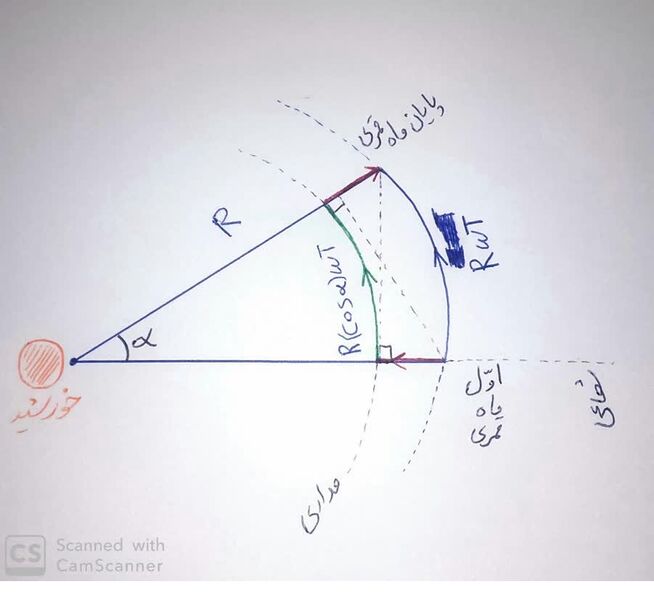 پایان ماه قمری
R
R ω T
R(cosα)ωT
α
خورشید
اوّل
ماه
قمری
شعاعی
مداری
CS
Scanned with
CamScanner